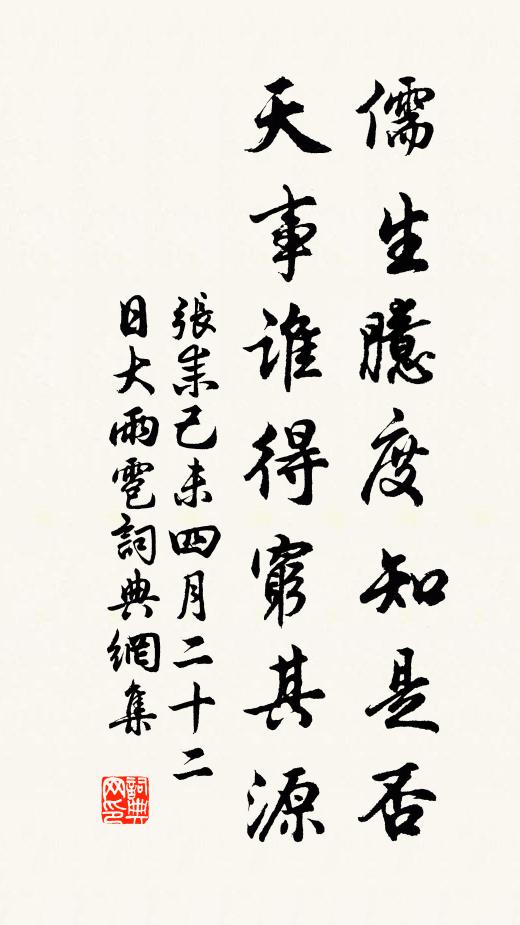 儒生臆度知是否
天事誰得窮其源
張耒己未四月二十二
日大雨雹詞典網集
詞典
网印